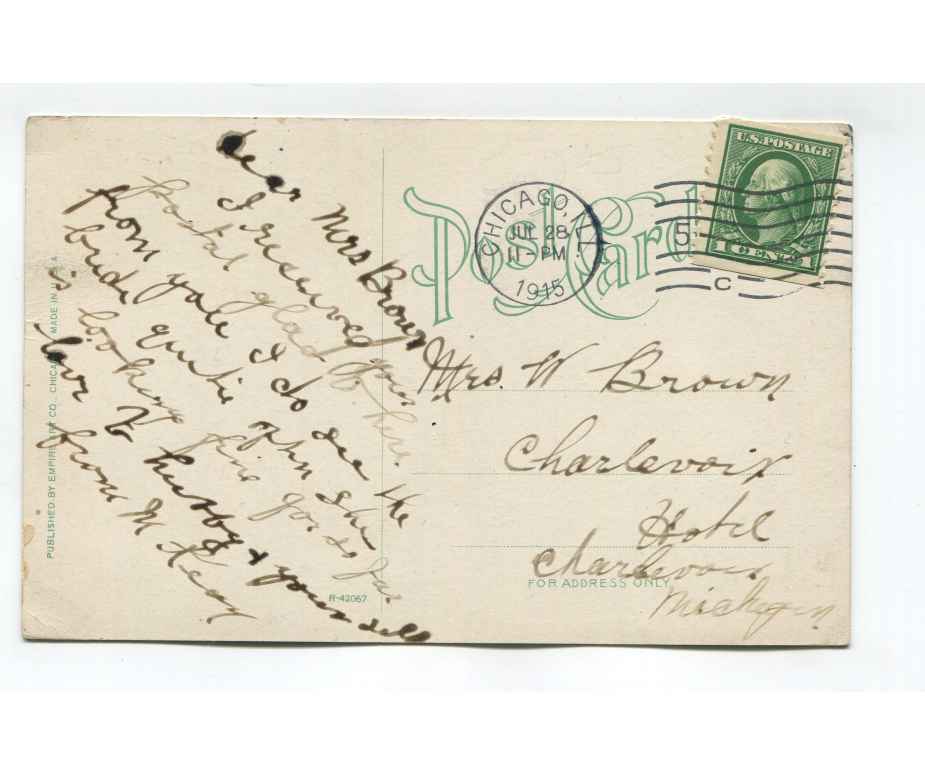 Dear Mrs Brown
I received your
postal glad to here
from you I do see the
bride quite often she
is looking fine goo so far
love to hubby & your sell
from M Keay
Post Card
CHICAGO, ILL.
JUL 28
11-PM
1915
5
C
U.S. POSTAGE
1 CENT
Mrs. W Brown
Charlevoix
Hotel
Charlevoix
Michegen
FOR ADDRESS ONLY
R-42067
PUBLISHED BY EMPIRE ART CO., CHICAGO. MADE IN U.S.A.